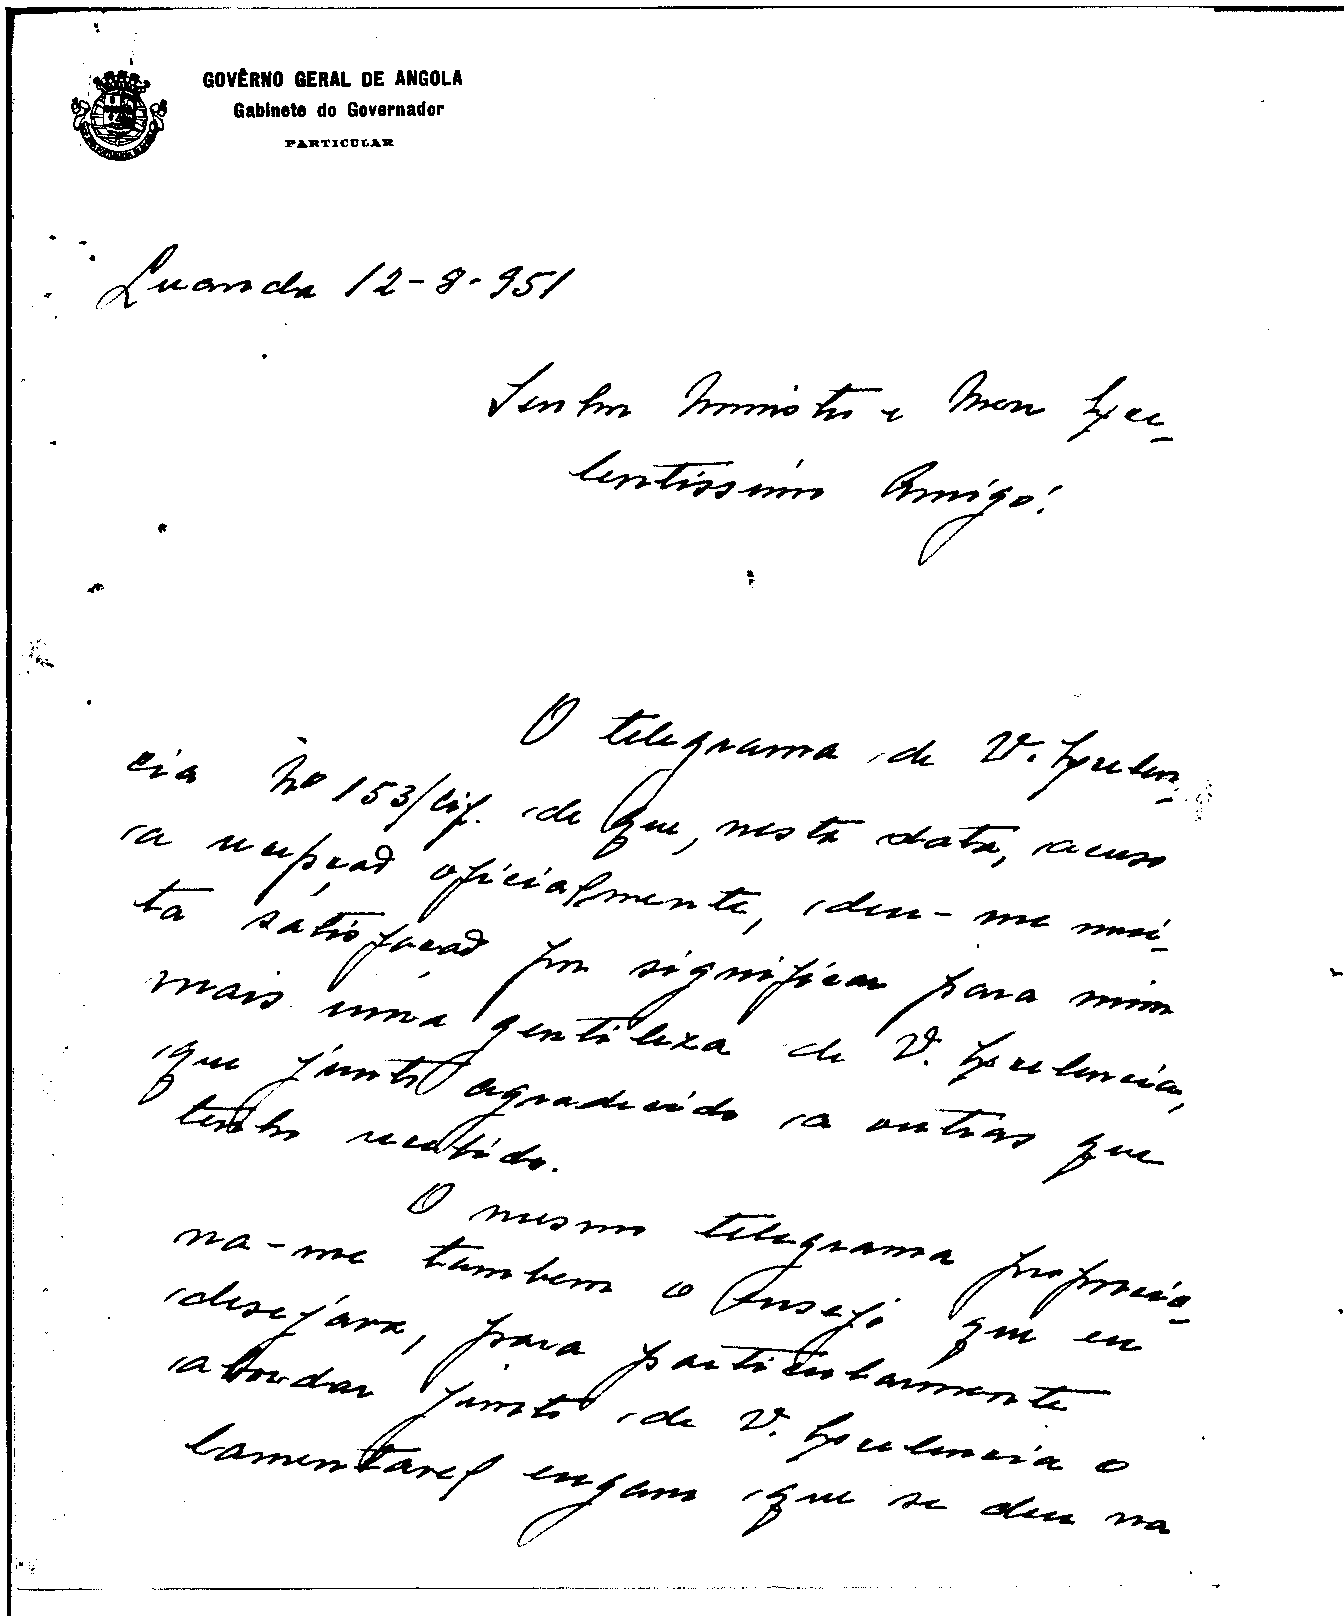 GOVÊRNO GERAL DE ANGOLA
Gabinete do Governador
PARTICULAR
Luanda 12-8-951
Senhor Ministro e Meu Exce-
lentissimo Amigo!
O telegrama de V. Excelen-
cia Nº 153/Cif. de que, nesta data, acuso
a recepção oficialmente, deu-me mui-
ta satisfação por significar para mim
mais uma gentileza de V. Excelencia,
que junto agradecido a outras que
tenho recebido.
O mesmo telegrama proporcio-
na-me tambem o ensejo que eu
desejava, para particularmente
abordar junto de V. Excelencia o
lamentavel engano que se deu na